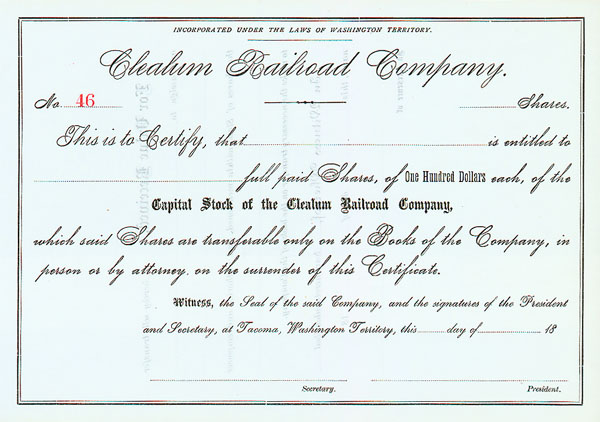 INCORPORATED UNDER THE LAWS OF WASHINGTON TERRITORY.
Clealum Railroad Company.
No. 46 Shares.
This is to Certify, that is entitled to
full paid Shares, of One Hundred Dollars each, of the
Capital Stock of the Clealum Railroad Company,
which said Shares are transferable only on the Books of the Company, in
person or by attorney on the surrender of this Certificate.
Witness, the Seal of the said Company, and the signatures of the President
and Secretary, at Tacoma, Washington Territory, this day of 18
Secretary. President.